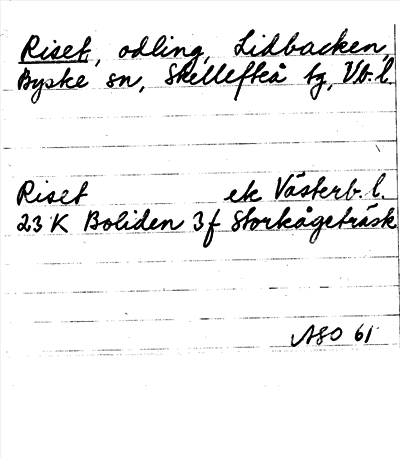 Riset, odling, Lidbacken,
Byske sn, Skellefteå tg, Vb. l.
Riset ek Västerb. l.
23 K Boliden 3 f Storkågeträsk
ASO 61